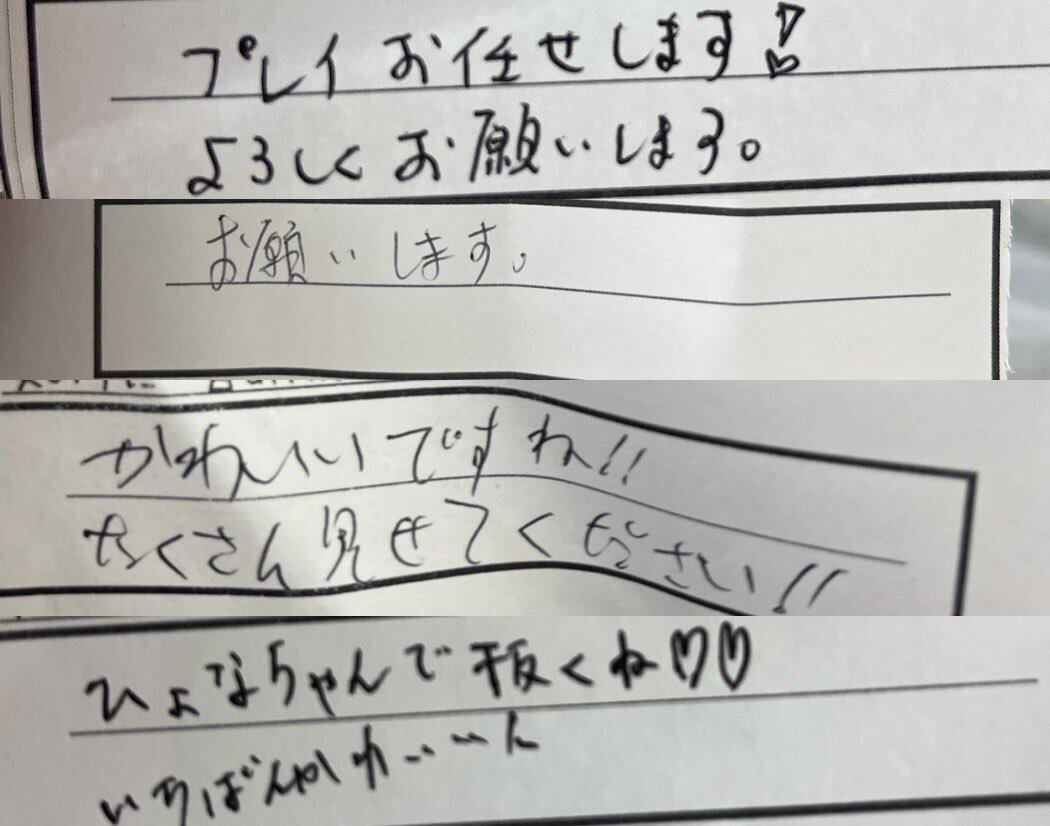 プレイお任せします!♡
よろしくお願いします。
お願いします。
かわいいですね!!
たくさん見せてください!!
ひよなちゃんで抜くね♡♡
いちばんかわいーん